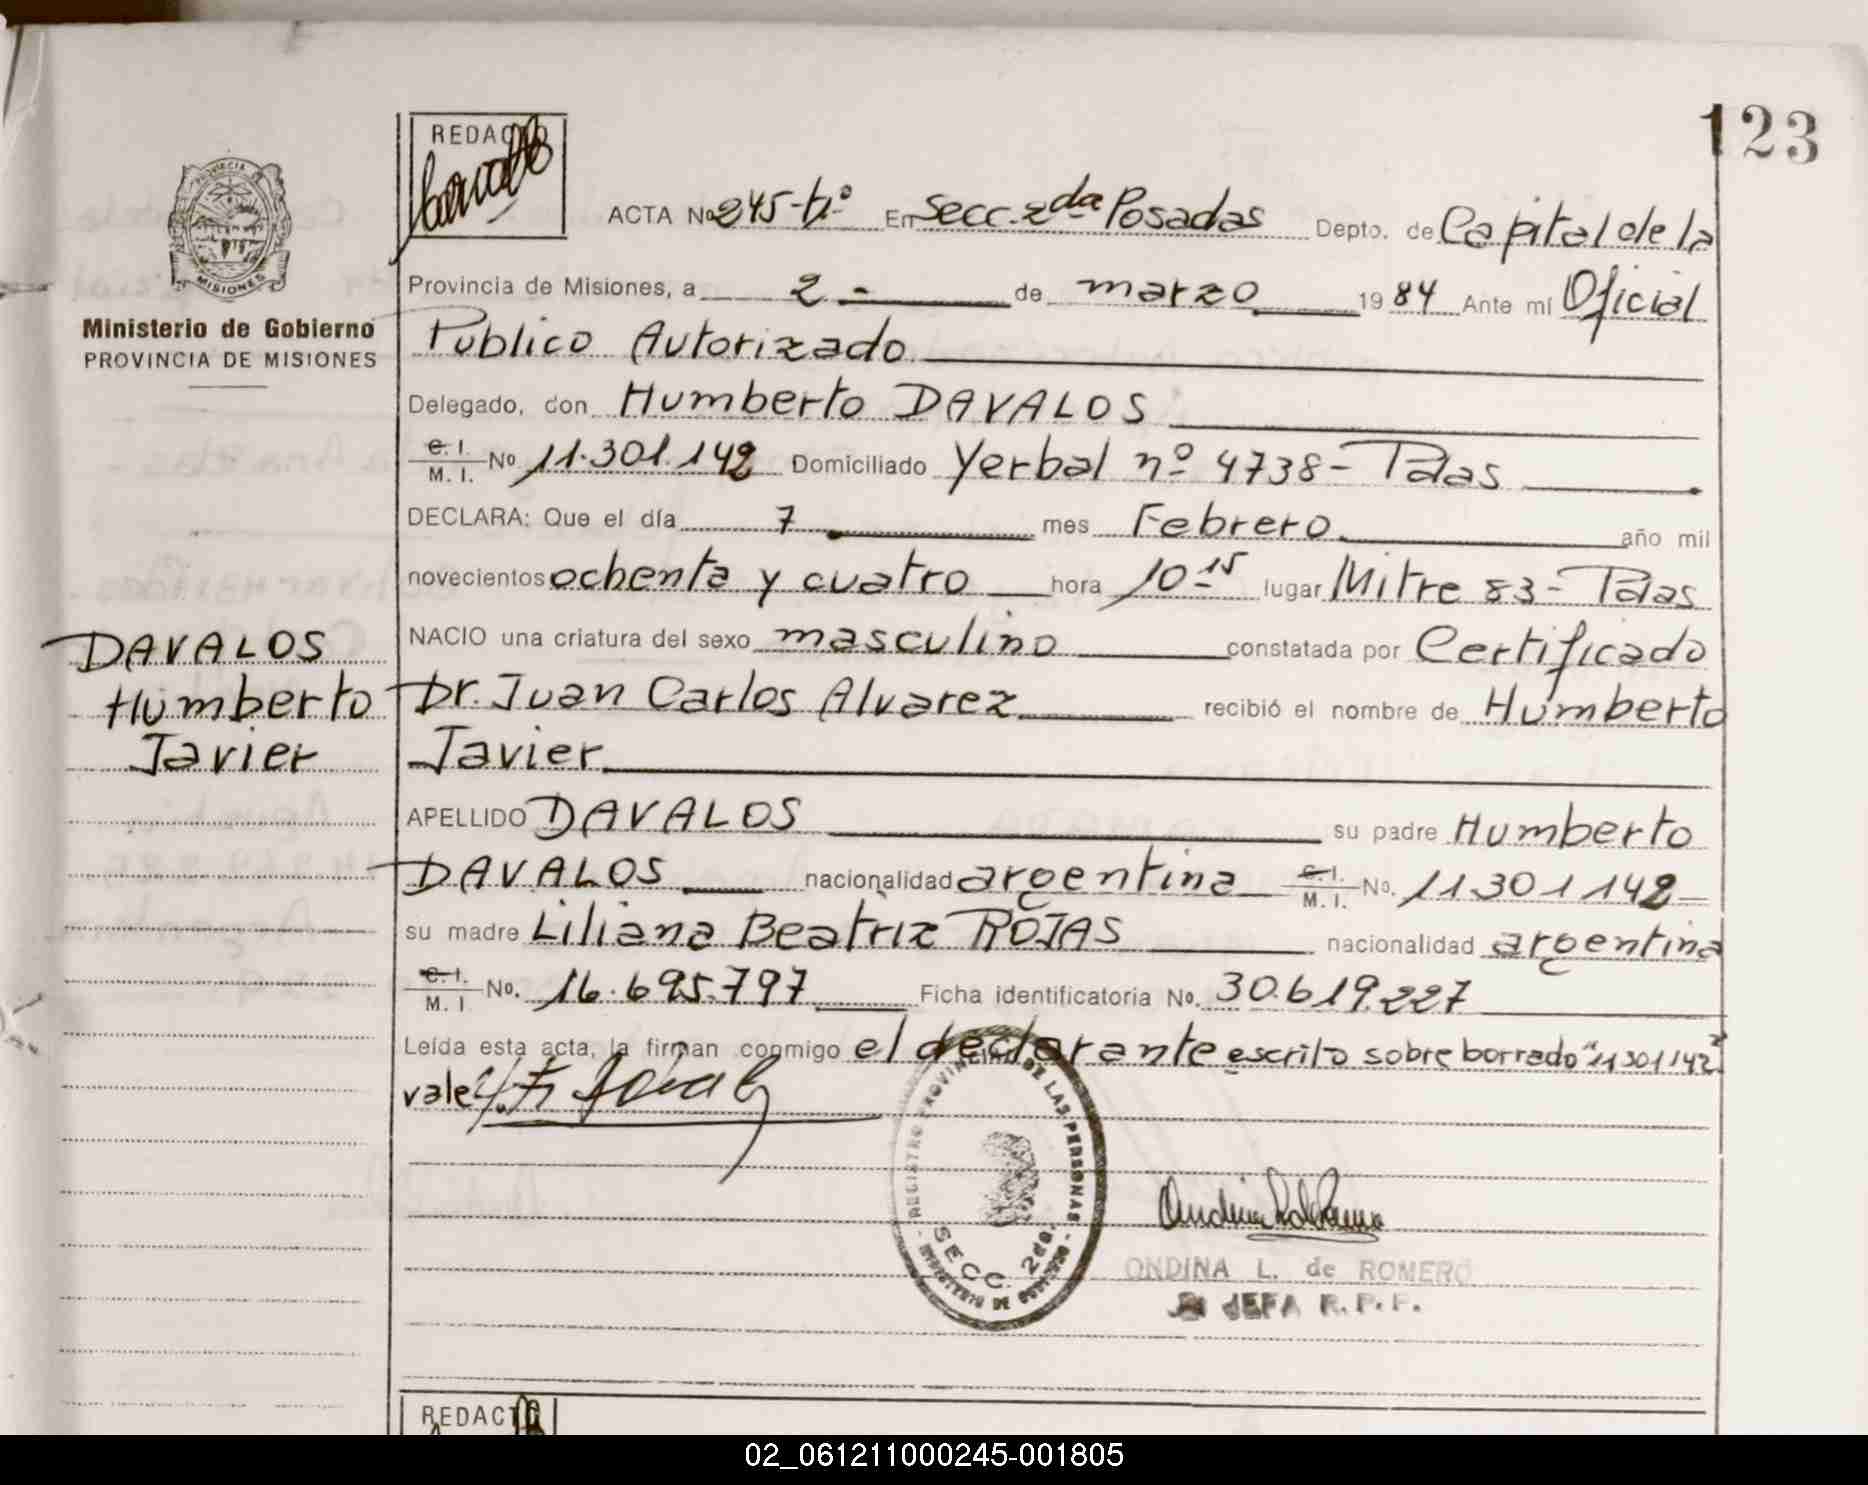 123
REDACTO
ACTA No 245-tº En Secc. 2da Posadas Depto. de Capital de la
Provincia de Misiones, a 2- de marzo 1984 Ante mí Oficial
Público Autorizado
Delegado, don Humberto DAVALOS
C. I. M. I. No 11.301.142 Domiciliado Yerbal nº 4738- Pdas
DECLARA: Que el día 7 mes Febrero año mil
novecientos ochenta y cuatro hora 10-15 lugar Mitre 83- Pdas
NACIO una criatura del sexo masculino constatada por Certificado
Dr. Juan Carlos Alvarez recibió el nombre de Humberto
Javier
APELLIDO DAVALOS su padre Humberto
DAVALOS nacionalidad argentina C. I. M. I. No. 11301142-
su madre Liliana Beatriz ROJAS nacionalidad argentina
C. I. M. I No. 16.695.797 Ficha identificatoria No. 30.619.227
Leída esta acta, la firman conmigo el declarante escrito sobre borrado "11301142"
vale
REGISTRO PROVINCIAL DE LAS PERSONAS
SECC. 2da.
ONDINA L. de ROMERO
JEFA R. P. P.
Ministerio de Gobierno
PROVINCIA DE MISIONES
PROVINCIA
MISIONES
DAVALOS
Humberto
Javier
REDACTO
02_061211000245-001805